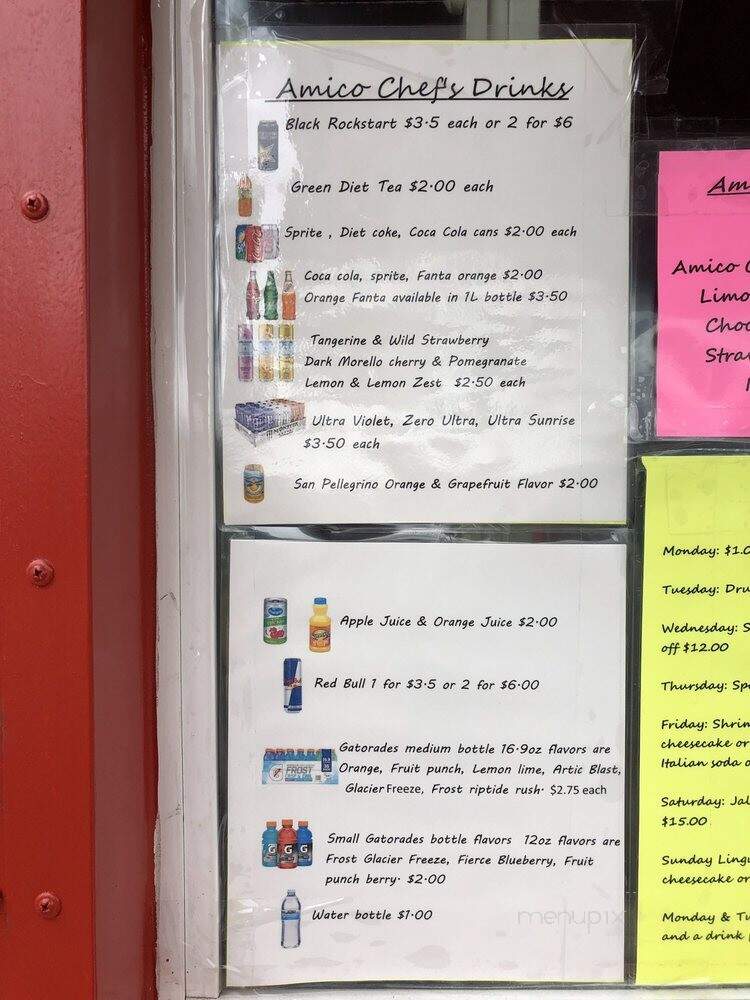 Amico Chef's Drinks
Black Rockstart $3.5 each or 2 for $6
Green Diet Tea $2.00 each
Sprite , Diet coke, Coca Cola cans $2.00 each
Coca cola, sprite, Fanta orange $2.00
Orange Fanta available in 1L bottle $3.50
Tangerine & Wild Strawberry
Dark Morello cherry & Pomegranate
Lemon & Lemon Zest $2.50 each
Ultra Violet, Zero Ultra, Ultra Sunrise
$3.50 each
San Pellegrino Orange & Grapefruit Flavor $2.00
Apple Juice & Orange Juice $2.00
Red Bull 1 for $3.5 or 2 for $6.00
Gatorades medium bottle 16.9oz flavors are
Orange, Fruit punch, Lemon lime, Artic Blast,
Glacier Freeze, Frost riptide rush. $2.75 each
Small Gatorades bottle flavors 12oz flavors are
Frost Glacier Freeze, Fierce Blueberry, Fruit
punch berry. $2.00
Water bottle $1.00
menupix
Am
Amico
Limo
Choc
Stra
Monday: $1.0
Tuesday: Dru
Wednesday: S
off $12.00
Thursday: Sp
Friday: Shrim
cheesecake or
Italian soda o
Saturday: Jal
$15.00
Sunday Lingu
cheesecake or
Monday & Tu
and a drink